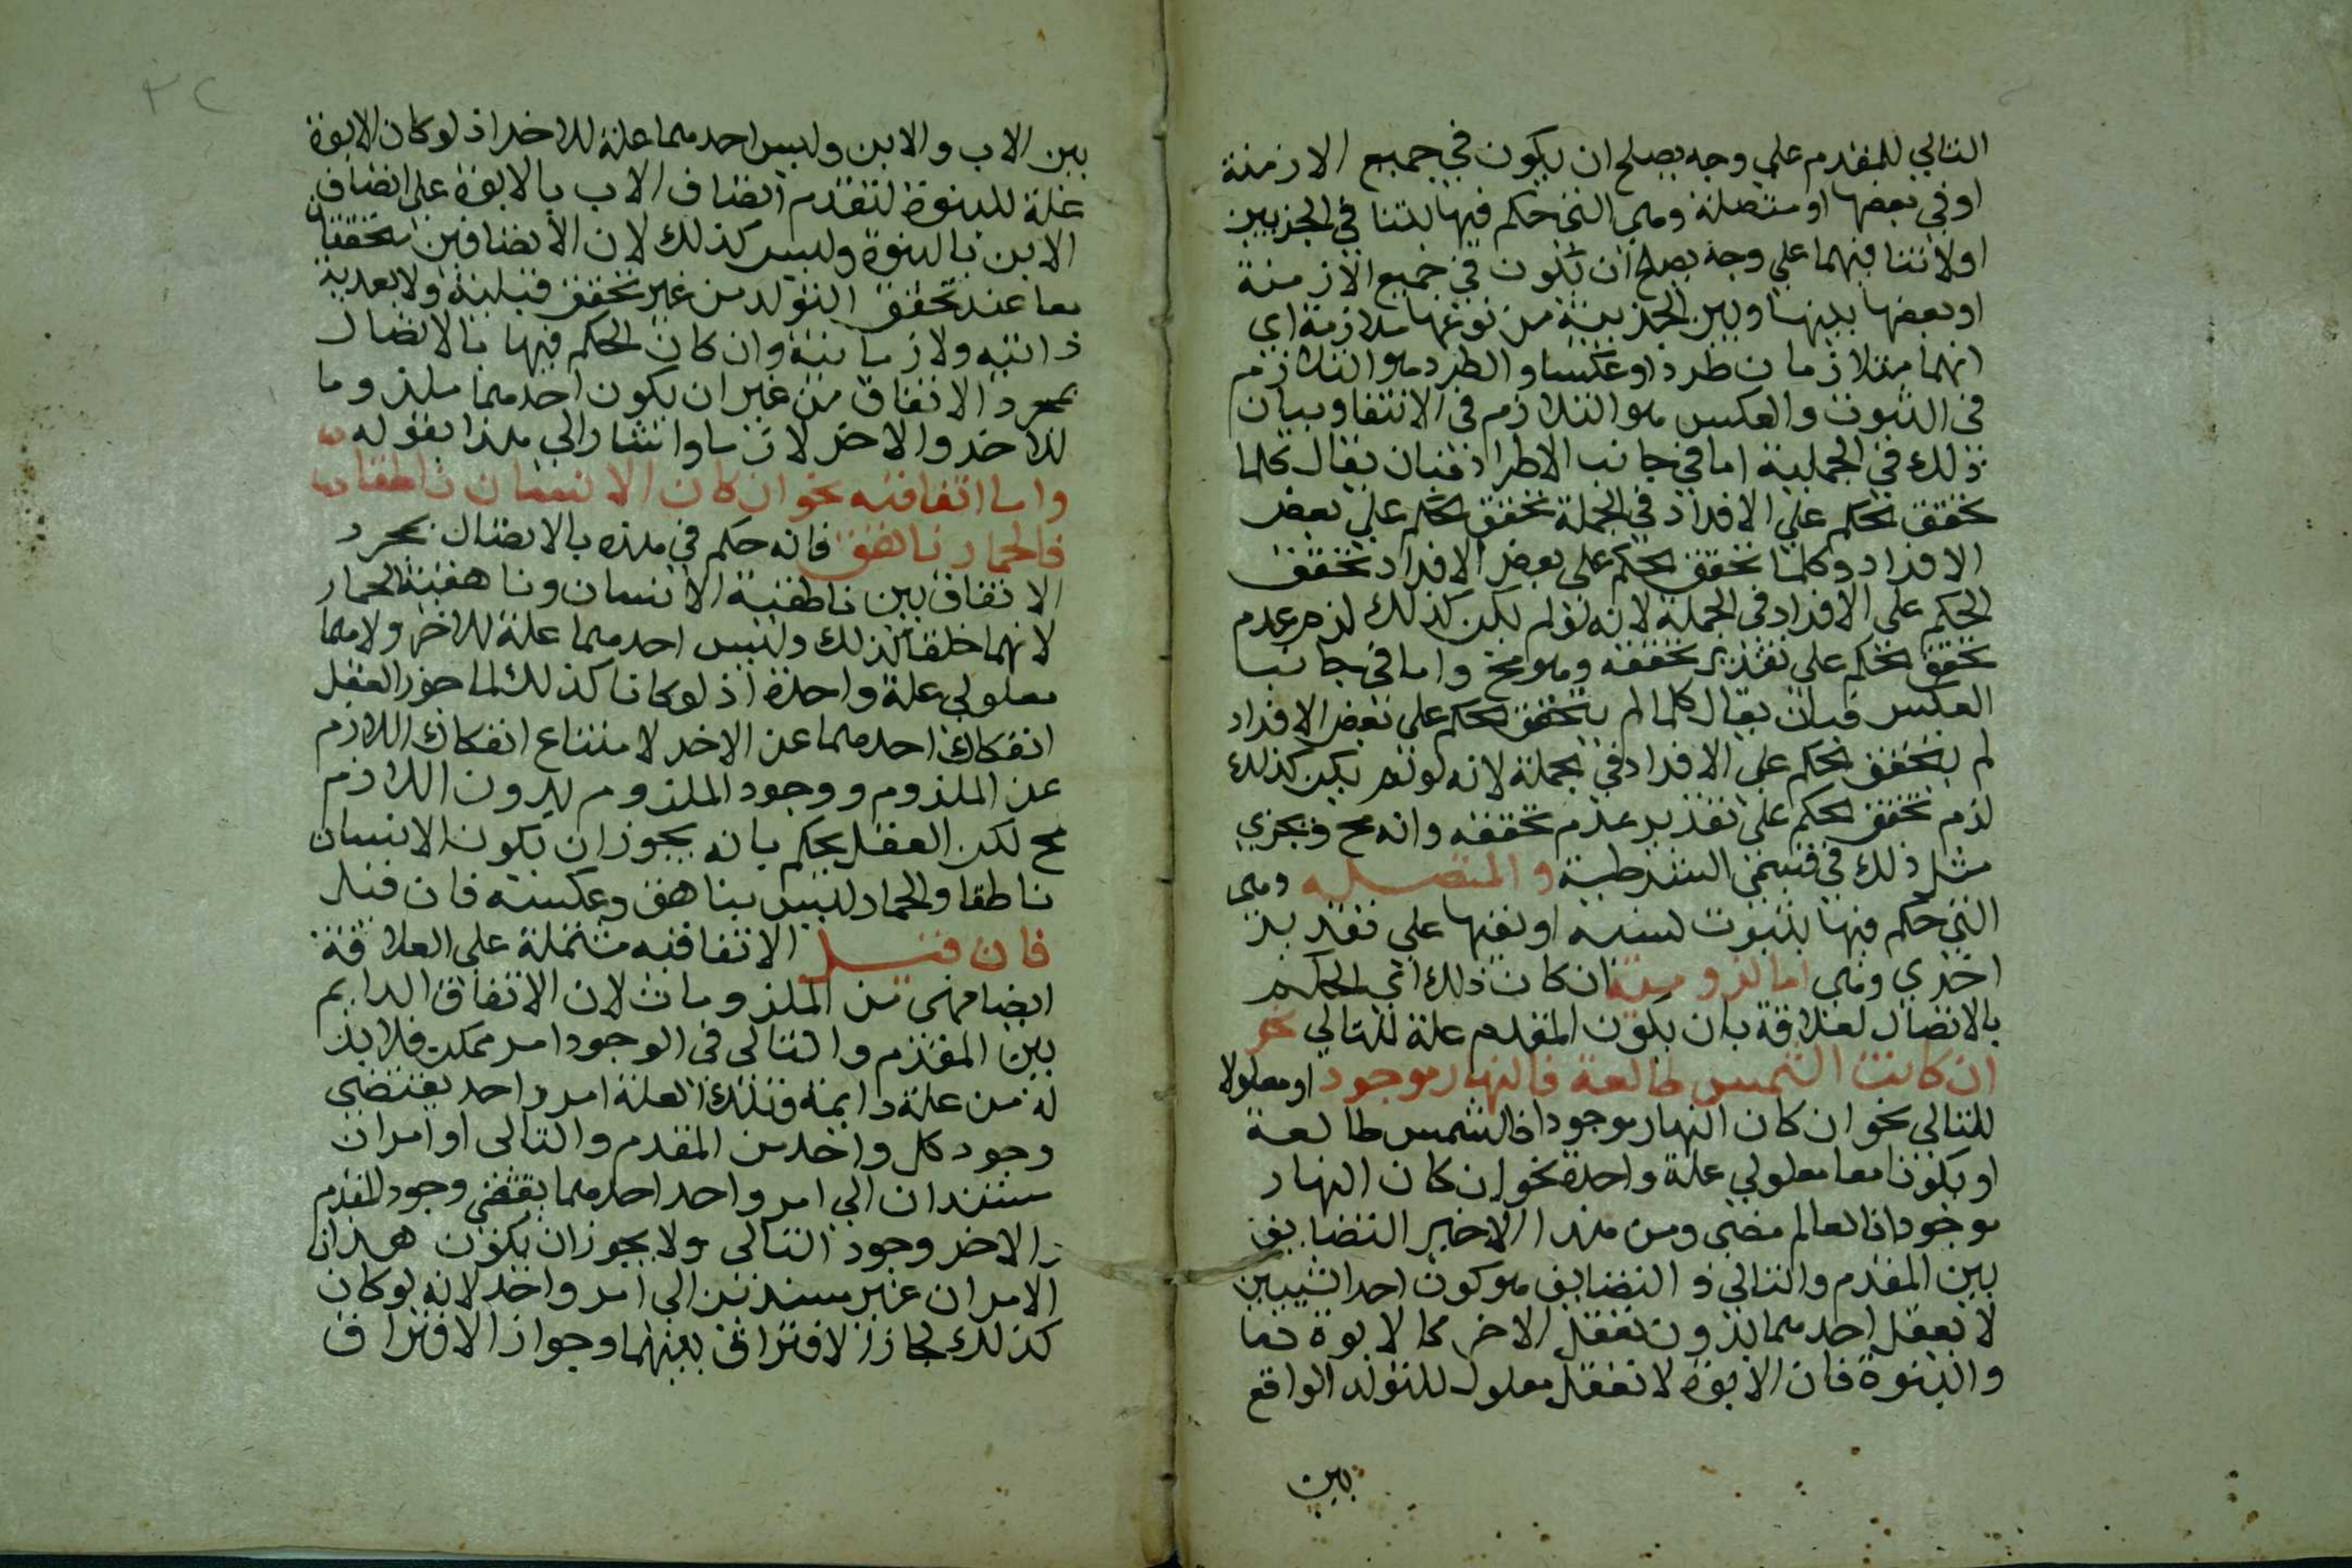 التالي للمقدم علي وجه يصلح ان يكون في جميع الازمنة
او في بعضها او منتصلة وهي التي حكم فيها بالتنافي الجزيين
او لا تنافيهما علي وجه يصلح ان تكون في جميع الازمنة
او بعضها بينها وبين الجزيية من نوعها ملازمة اي
انهما متلازمان طردا وعكسا والطرد هو التلازم
في الثبوت والعكس هو التلازم في الانتفا وبيان
ذلك في الحملية اما في جانب الاطراد فبان يقال كلما
تحقق الحكم علي الافراد في الجملة تحقق الحكم علي بعض
الافراد وكلما تحقق الحكم علي بعض الافراد تحقق
الحكم علي الافراد في الجملة لانه لو لم يكن كذلك لزم عدم
تحقق الحكم علي تقدير تحققه وهو مح واما في جانب
العكس فبان يقال كلما لم يتحقق الحكم علي بعض الافراد
لم يتحقق الحكم علي الافراد في الجملة لانه لو لم يكن كذلك
لزم تحقق الحكم علي تقدير عدم تحققه وانه مح ويجري
مثل ذلك في قسمي الشرطية والمتصله وهي
التي حكم فيها بثبوت نسبه او نفيها علي تقدير
اخري وهي اما لزومية ان كان ذلك اي الحكم
بالاتصال لعلاقة بان يكون المقدم علة للتالي نحو
ان كانت الشمس طالعة فالنهار موجود او معلولا
للتالي نحو ان كان النهار موجودا فالشمس طالعة
او يكونا معا معلولي علة واحدة نحو ان كان النهار
موجودا فالعالم مضي ومن هذا الاخير التضايف
بين المقدم والتالي و التضايف هو كون احد الشييين
لا يعقل احدهما بدون تعقل الاخر كالابوة
والبنوة فان الابوة لا تعقل معلول للتولد الواقع
بين
بين الاب والابن وليس احدهما علة للاخر اذ لو كان الابوة
علة للبنوة لتقدم اتصاف الاب بالابوة علي اتصاف
الابن بالبنوة وليس كذلك لان الاتصافين يتحققان
معا عند تحقق التولد من غير تحقق قبلية ولا بعدية
ذاتيه ولا زمانية وان كان الحكم فيها بالاتصال
بمجرد الاتفاق من غير ان يكون احدهما ملزوما
للاخر والاخر لازما واشار الي هذا بقوله
واما اتفاقيه نحو ان كان الانسان ناطقا
فالحمار ناهق فانه حكم في هذه بالاتصال بمجرد
الاتفاق بين ناطقية الانسان وناهقية الحمار
لانهما خلقا كذلك وليس احدهما علة للاخر ولا هما
معلولي علة واحدة اذ لو كانا كذلك لما جوز العقل
انفكاك احدهما عن الاخر لامتناع انفكاك اللازم
عن الملزوم ووجود الملزوم بدون اللازم
مح لكن العقل يحكم بانه يجوز ان يكون الانسان
ناطقا والحمار ليس بناهق وعكسه فان قيل
فان قيل الاتفاقيه مشتملة علي العلاقة
ايضا فهي من الملزومات لان الاتفاق الدايم
بين المقدم والتالي في الوجود امر ممكن فلا بد
له من علة دايمة وتلك العلة امر واحد يقتضي
وجود كل واحد من المقدم والتالي او امران
مستندان الي امر واحد احدهما يقتضي وجود المقدم
والاخر وجود التالي ولا يجوز ان يكون هذان
الامران غير مستندين الي امر واحد لانه لو كان
كذلك لجاز الافتراق بينهما وجواز الافتراق